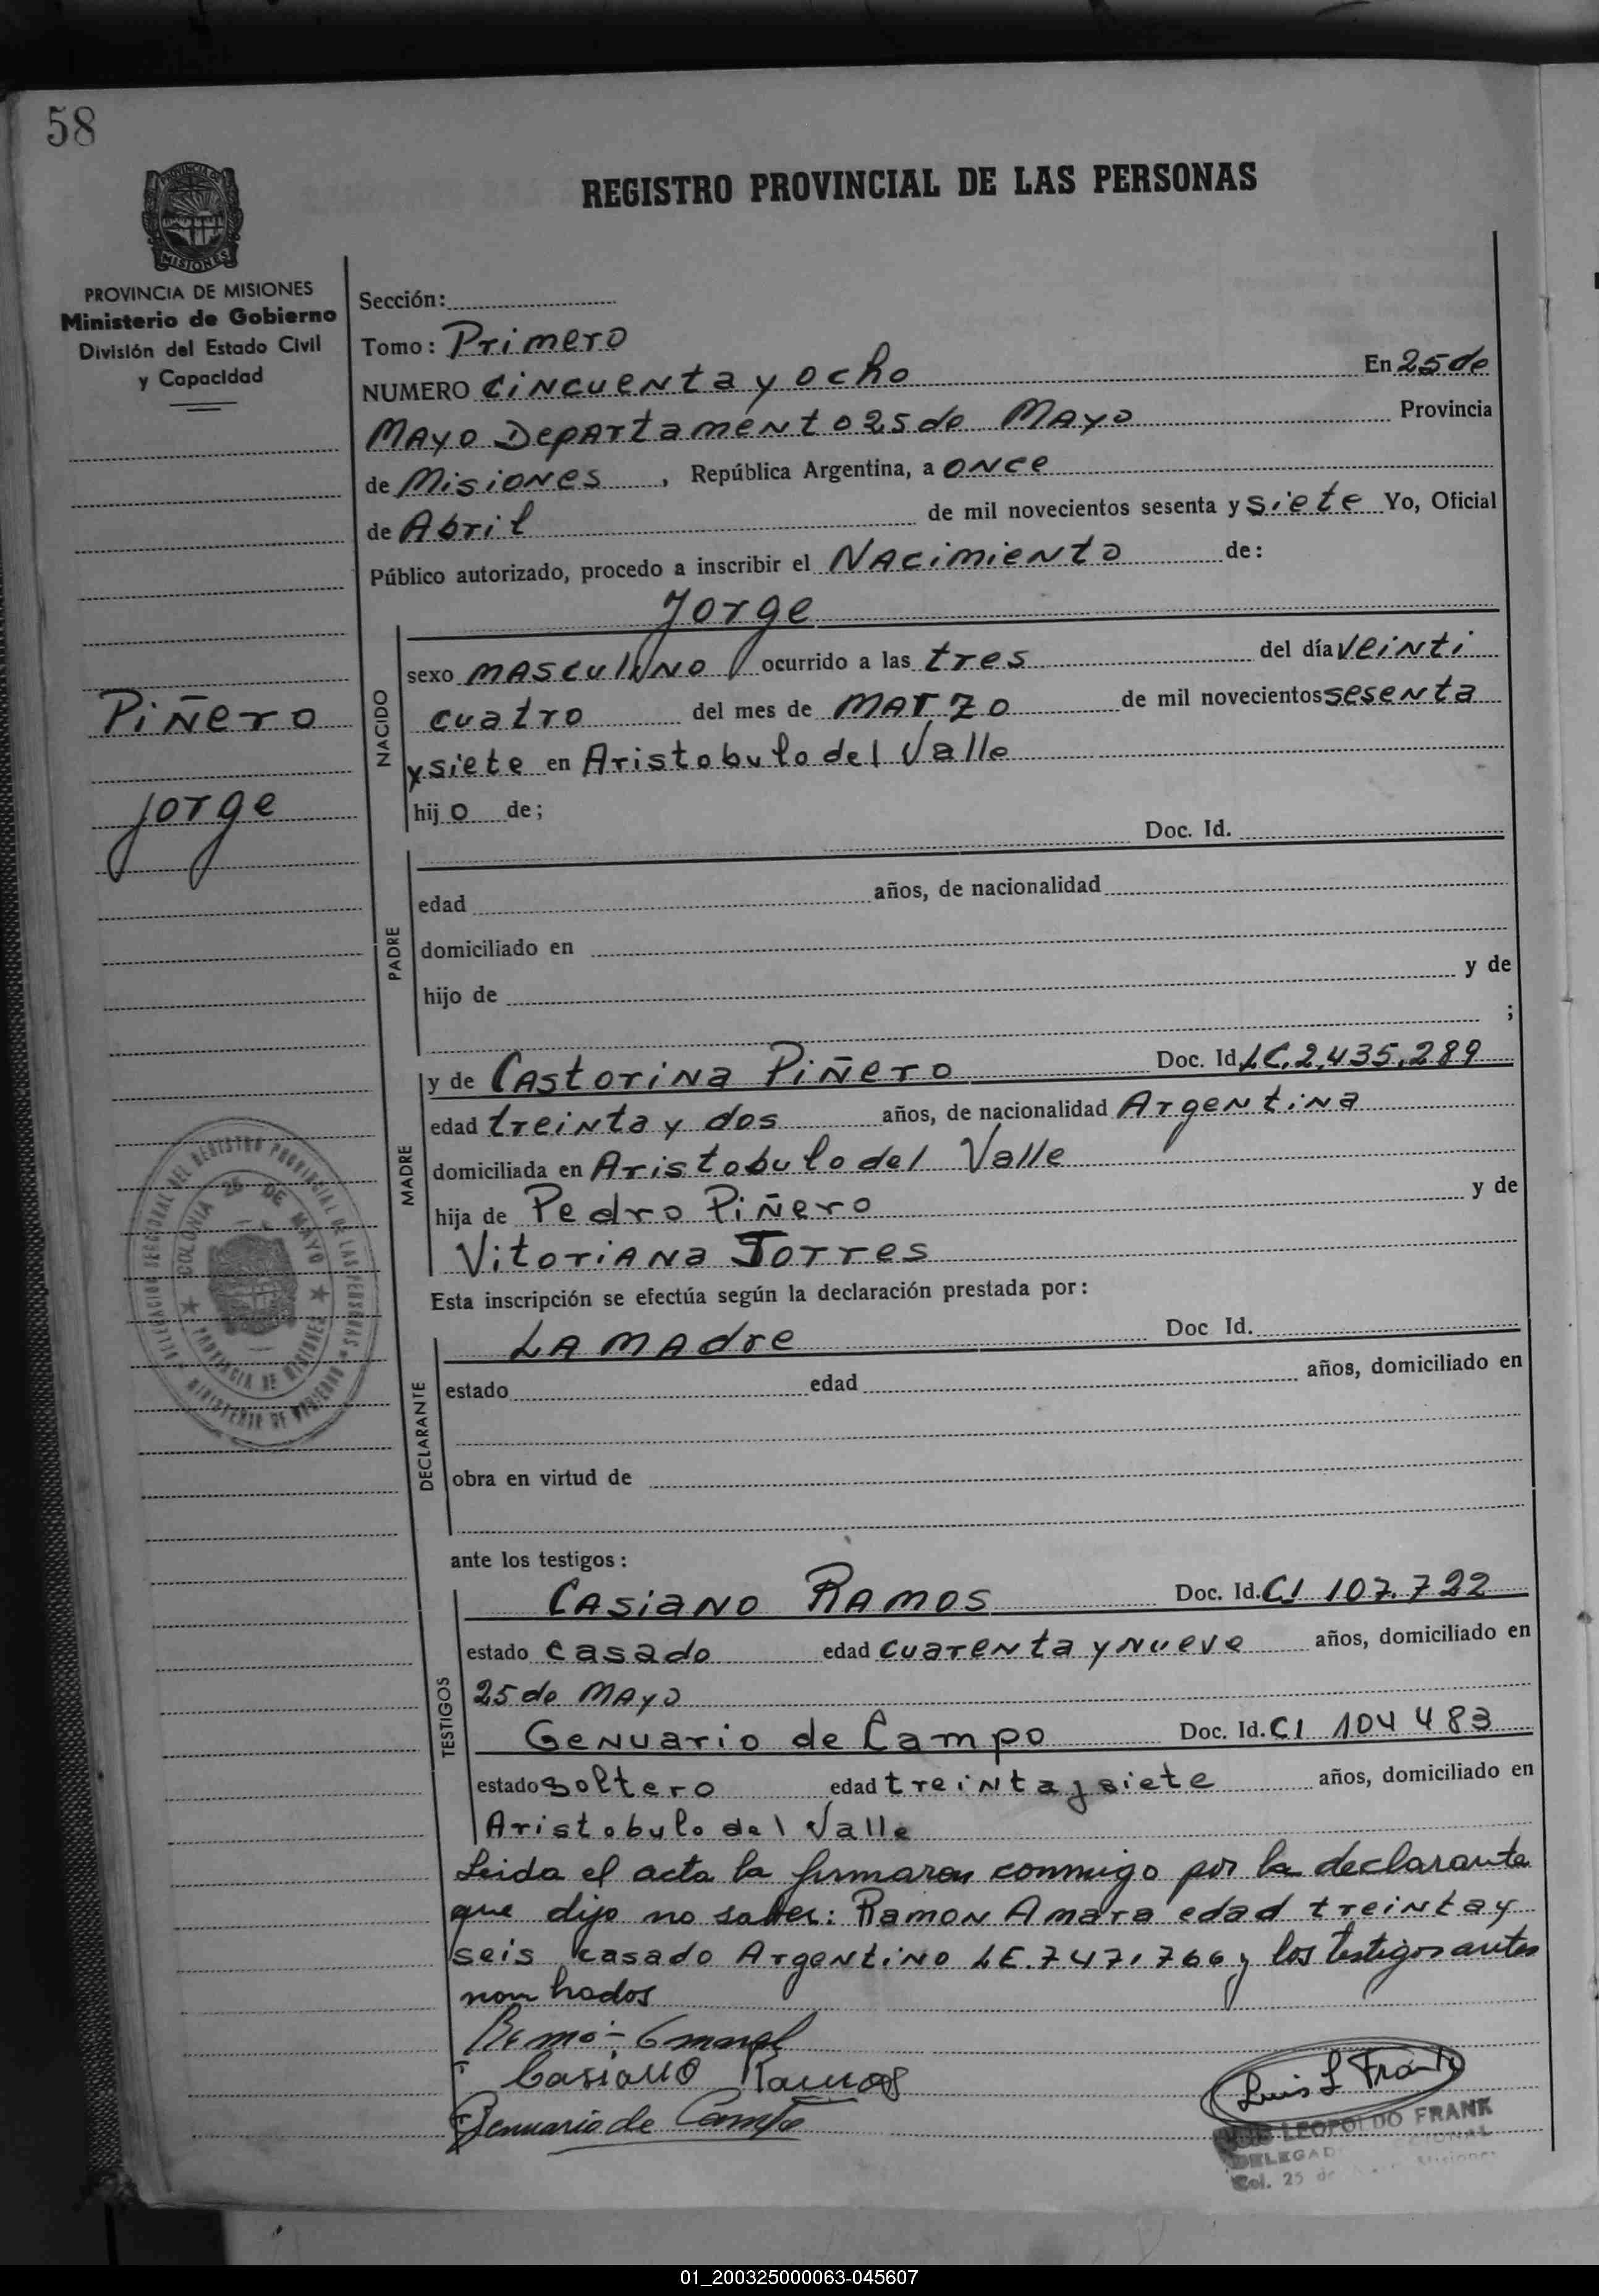 58
REGISTRO PROVINCIAL DE LAS PERSONAS
PROVINCIA DE
MISIONES
PROVINCIA DE MISIONES
Ministerio de Gobierno
División del Estado Civil
y Capacidad
Piñero
Jorge
DELEGACION SECCIONAL DEL REGISTRO PROVINCIAL DE LAS PERSONAS
MINISTERIO DE GOBIERNO
COLONIA 25 DE MAYO
PROVINCIA DE MISIONES
Sección:
Tomo: Primero
NUMERO cincuenta y ocho En 25 de
Mayo Departamento 25 de Mayo Provincia
de Misiones, República Argentina, a once
de Abril de mil novecientos sesenta y siete Yo, Oficial
Público autorizado, procedo a inscribir el Nacimiento de:
Jorge
NACIDO
sexo masculino ocurrido a las tres del día veinti
cuatro del mes de Marzo de mil novecientos sesenta
y siete en Aristobulo del Valle
hijo de;
Doc. Id.
PADRE
edad años, de nacionalidad
domiciliado en
hijo de y de
;
MADRE
y de Castorina Piñero Doc. Id. LC. 2,435,289
edad treinta y dos años, de nacionalidad Argentina
domiciliada en Aristobulo del Valle
hija de Pedro Piñero y de
Vitoriana Torres
Esta inscripción se efectúa según la declaración prestada por:
DECLARANTE
La madre Doc Id.
estado edad años, domiciliado en
obra en virtud de
ante los testigos:
TESTIGOS
Casiano Ramos Doc. Id. CI 107.722
estado casado edad cuarenta y nueve años, domiciliado en
25 de Mayo
Genuario de Campo Doc. Id. CI 104 483
estado soltero edad treinta y siete años, domiciliado en
Aristobulo del Valle
Leida el acta la firmaron conmigo por la declarante
que dijo no saber: Ramon Amara edad treinta y
seis casado Argentino LE. 7471766 y los testigos antes
nombrados
Casiano Ramos
Genuario de Campo
Luis L Frank
LUIS LEOPOLDO FRANK
DELEGADO SECCIONAL
Col. 25 de Mayo Misiones
01_200325000063-045607